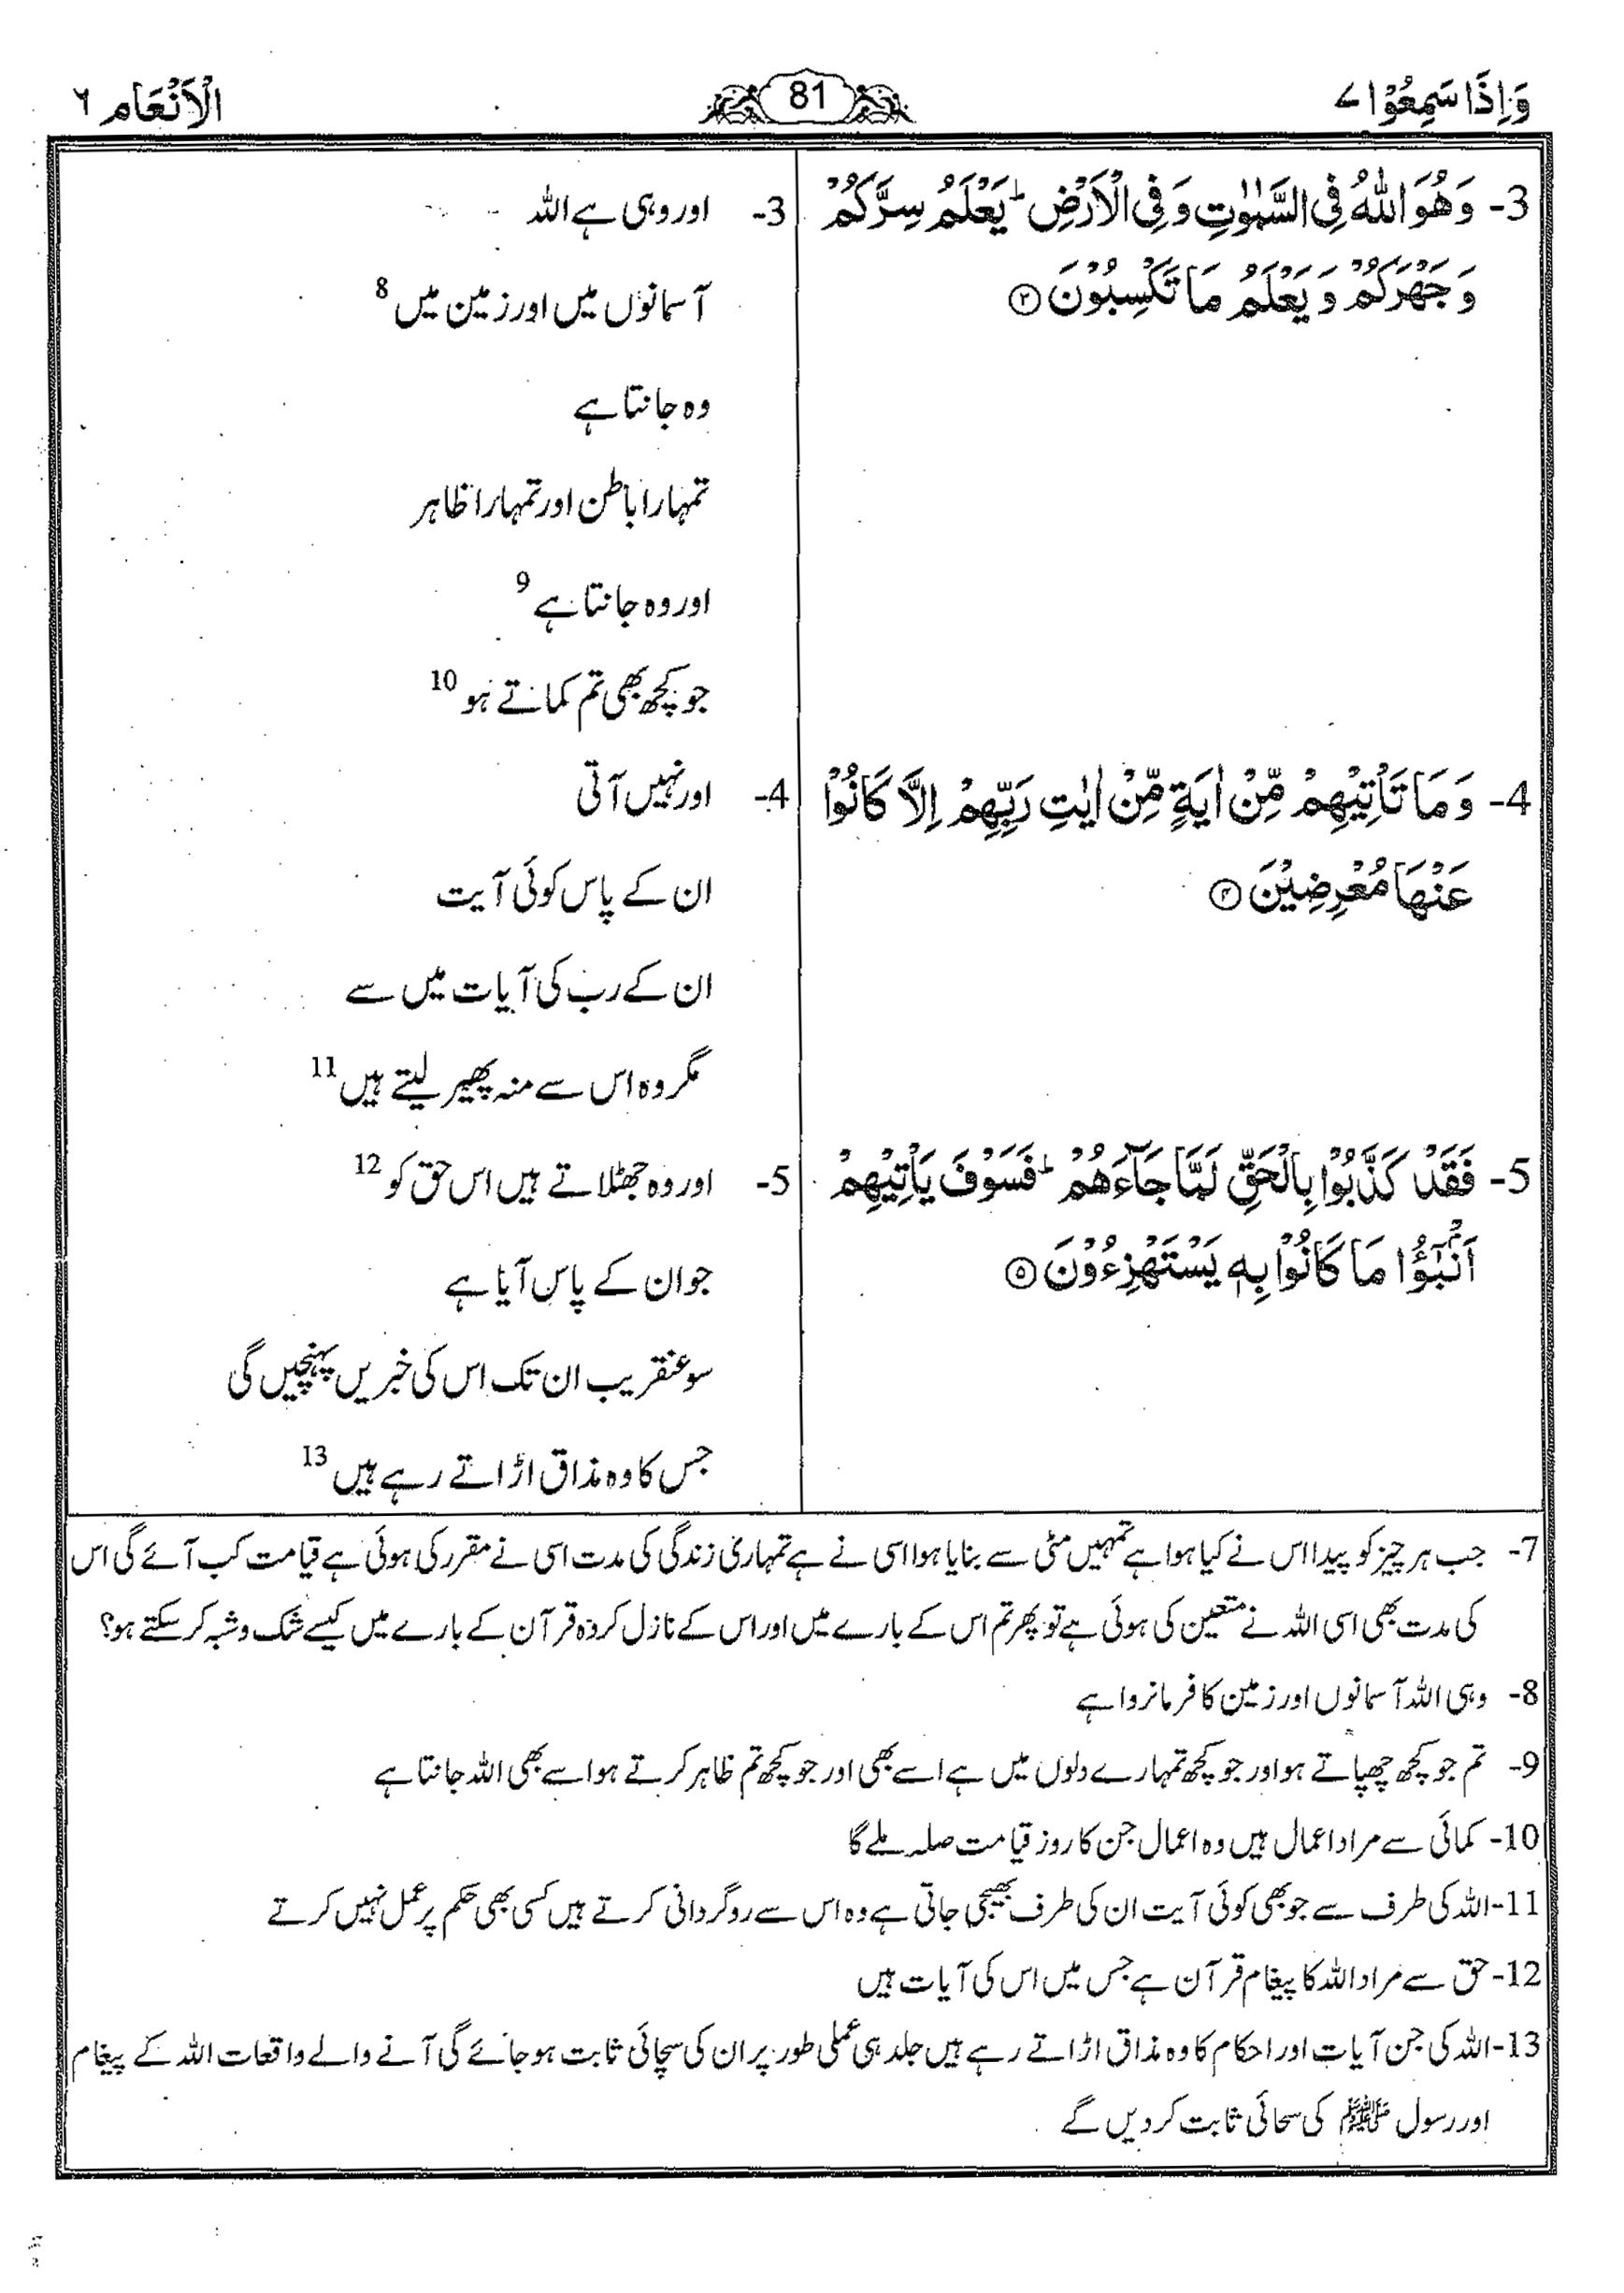 وَاِذَا سَمِعُوْا ٧
81
الْاَنْعَام ٦
3- وَهُوَ اللّٰهُ فِى السَّمٰوٰتِ وَفِى الْاَرْضِ ؕ يَعْلَمُ سِرَّكُمْ
وَجَهْرَكُمْ وَيَعْلَمُ مَا تَكْسِبُوْنَ ۝٣
4- وَمَا تَاْتِيْهِمْ مِّنْ اٰيَةٍ مِّنْ اٰيٰتِ رَبِّهِمْ اِلَّا كَانُوْا
عَنْهَا مُعْرِضِيْنَ ۝٤
5- فَقَدْ كَذَّبُوْا بِالْحَقِّ لَمَّا جَآءَهُمْ ؕ فَسَوْفَ يَاْتِيْهِمْ
اَنْۢبٰٓؤُا مَا كَانُوْا بِهٖ يَسْتَهْزِءُوْنَ ۝٥
3- اور وہی ہے اللہ
آسمانوں میں اور زمین میں 8
وہ جانتا ہے
تمہارا باطن اور تمہارا ظاہر
اور وہ جانتا ہے 9
جو کچھ بھی تم کماتے ہو 10
4- اور نہیں آتی
ان کے پاس کوئی آیت
ان کے رب کی آیات میں سے
مگر وہ اس سے منہ پھیر لیتے ہیں 11
5- اور وہ جھٹلاتے ہیں اس حق کو 12
جو ان کے پاس آیا ہے
سو عنقریب ان تک اس کی خبریں پہنچیں گی
جس کا وہ مذاق اڑاتے رہے ہیں 13
7- جب ہر چیز کو پیدا اس نے کیا ہوا ہے تمہیں مٹی سے بنایا ہوا اسی نے ہے تمہاری زندگی کی مدت اسی نے مقرر کی ہوئی ہے قیامت کب آئے گی اس
کی مدت بھی اسی اللہ نے متعین کی ہوئی ہے تو پھر تم اس کے بارے میں اور اس کے نازل کردہ قرآن کے بارے میں کیسے شک و شبہ کر سکتے ہو؟
8- وہی اللہ آسمانوں اور زمین کا فرمانروا ہے
9- تم جو کچھ چھپاتے ہو اور جو کچھ تمہارے دلوں میں ہے اسے بھی اور جو کچھ تم ظاہر کرتے ہو اسے بھی اللہ جانتا ہے
10- کمائی سے مراد اعمال ہیں وہ اعمال جن کا روز قیامت صلہ ملے گا
11- اللہ کی طرف سے جو بھی کوئی آیت ان کی طرف بھیجی جاتی ہے وہ اس سے روگردانی کرتے ہیں کسی بھی حکم پر عمل نہیں کرتے
12- حق سے مراد اللہ کا پیغام قرآن ہے جس میں اس کی آیات ہیں
13- اللہ کی جن آیات اور احکام کا وہ مذاق اڑاتے رہے ہیں جلد ہی عملی طور پر ان کی سچائی ثابت ہو جائے گی آنے والے واقعات اللہ کے پیغام
اور رسول ﷺ کی سچائی ثابت کر دیں گے